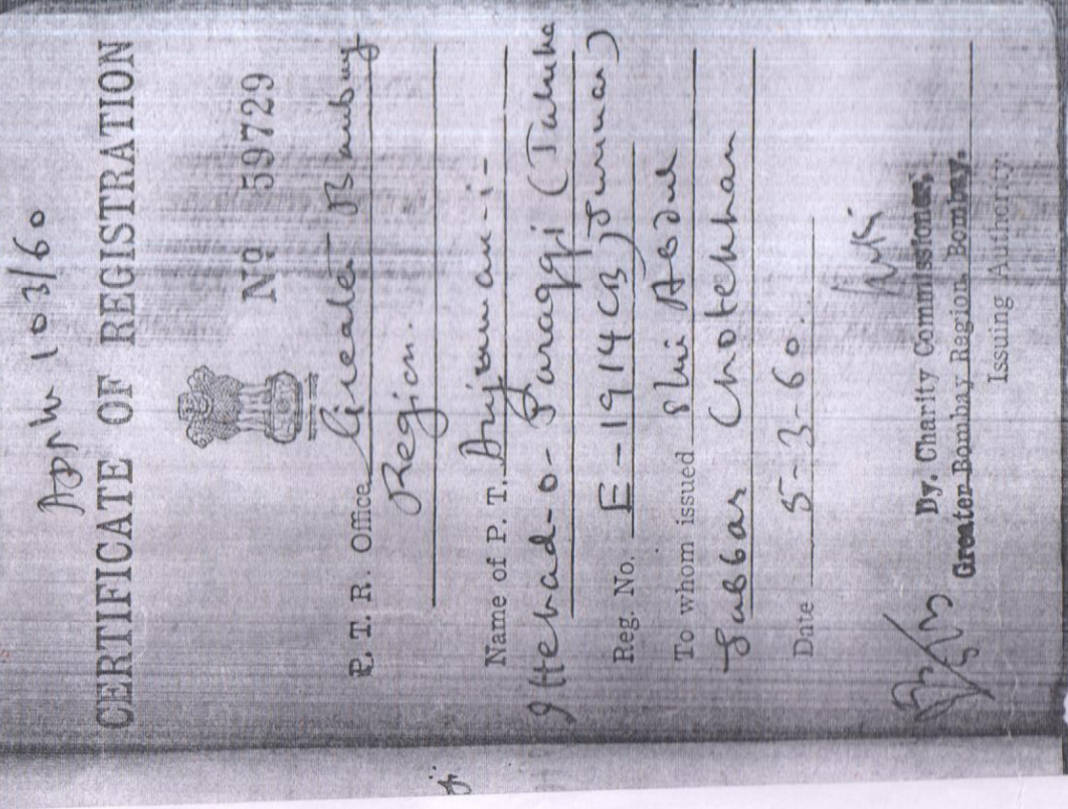 APPN 103/60
CERTIFICATE OF REGISTRATION
No 59729
P. T. R. Office Greater Bombay
Region.
Name of P. T. Anjuman-i-
Ittehad-o-Taraqqi (Taluka
Reg. No. E-1914(B) Junnar)
To whom issued Shri Abdul
Jabbar Chotekhan
Date 5-3-60.
Dy. Charity Commissioner,
Greater Bombay Region, Bombay.
Issuing Authority.